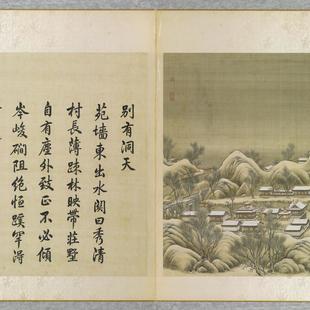 別有洞天
苑墻東出水関曰秀清
村長薄疎林映帶莊墅
自有塵外致正不必傾
岑峻磵阻絶恒蹊罕淂